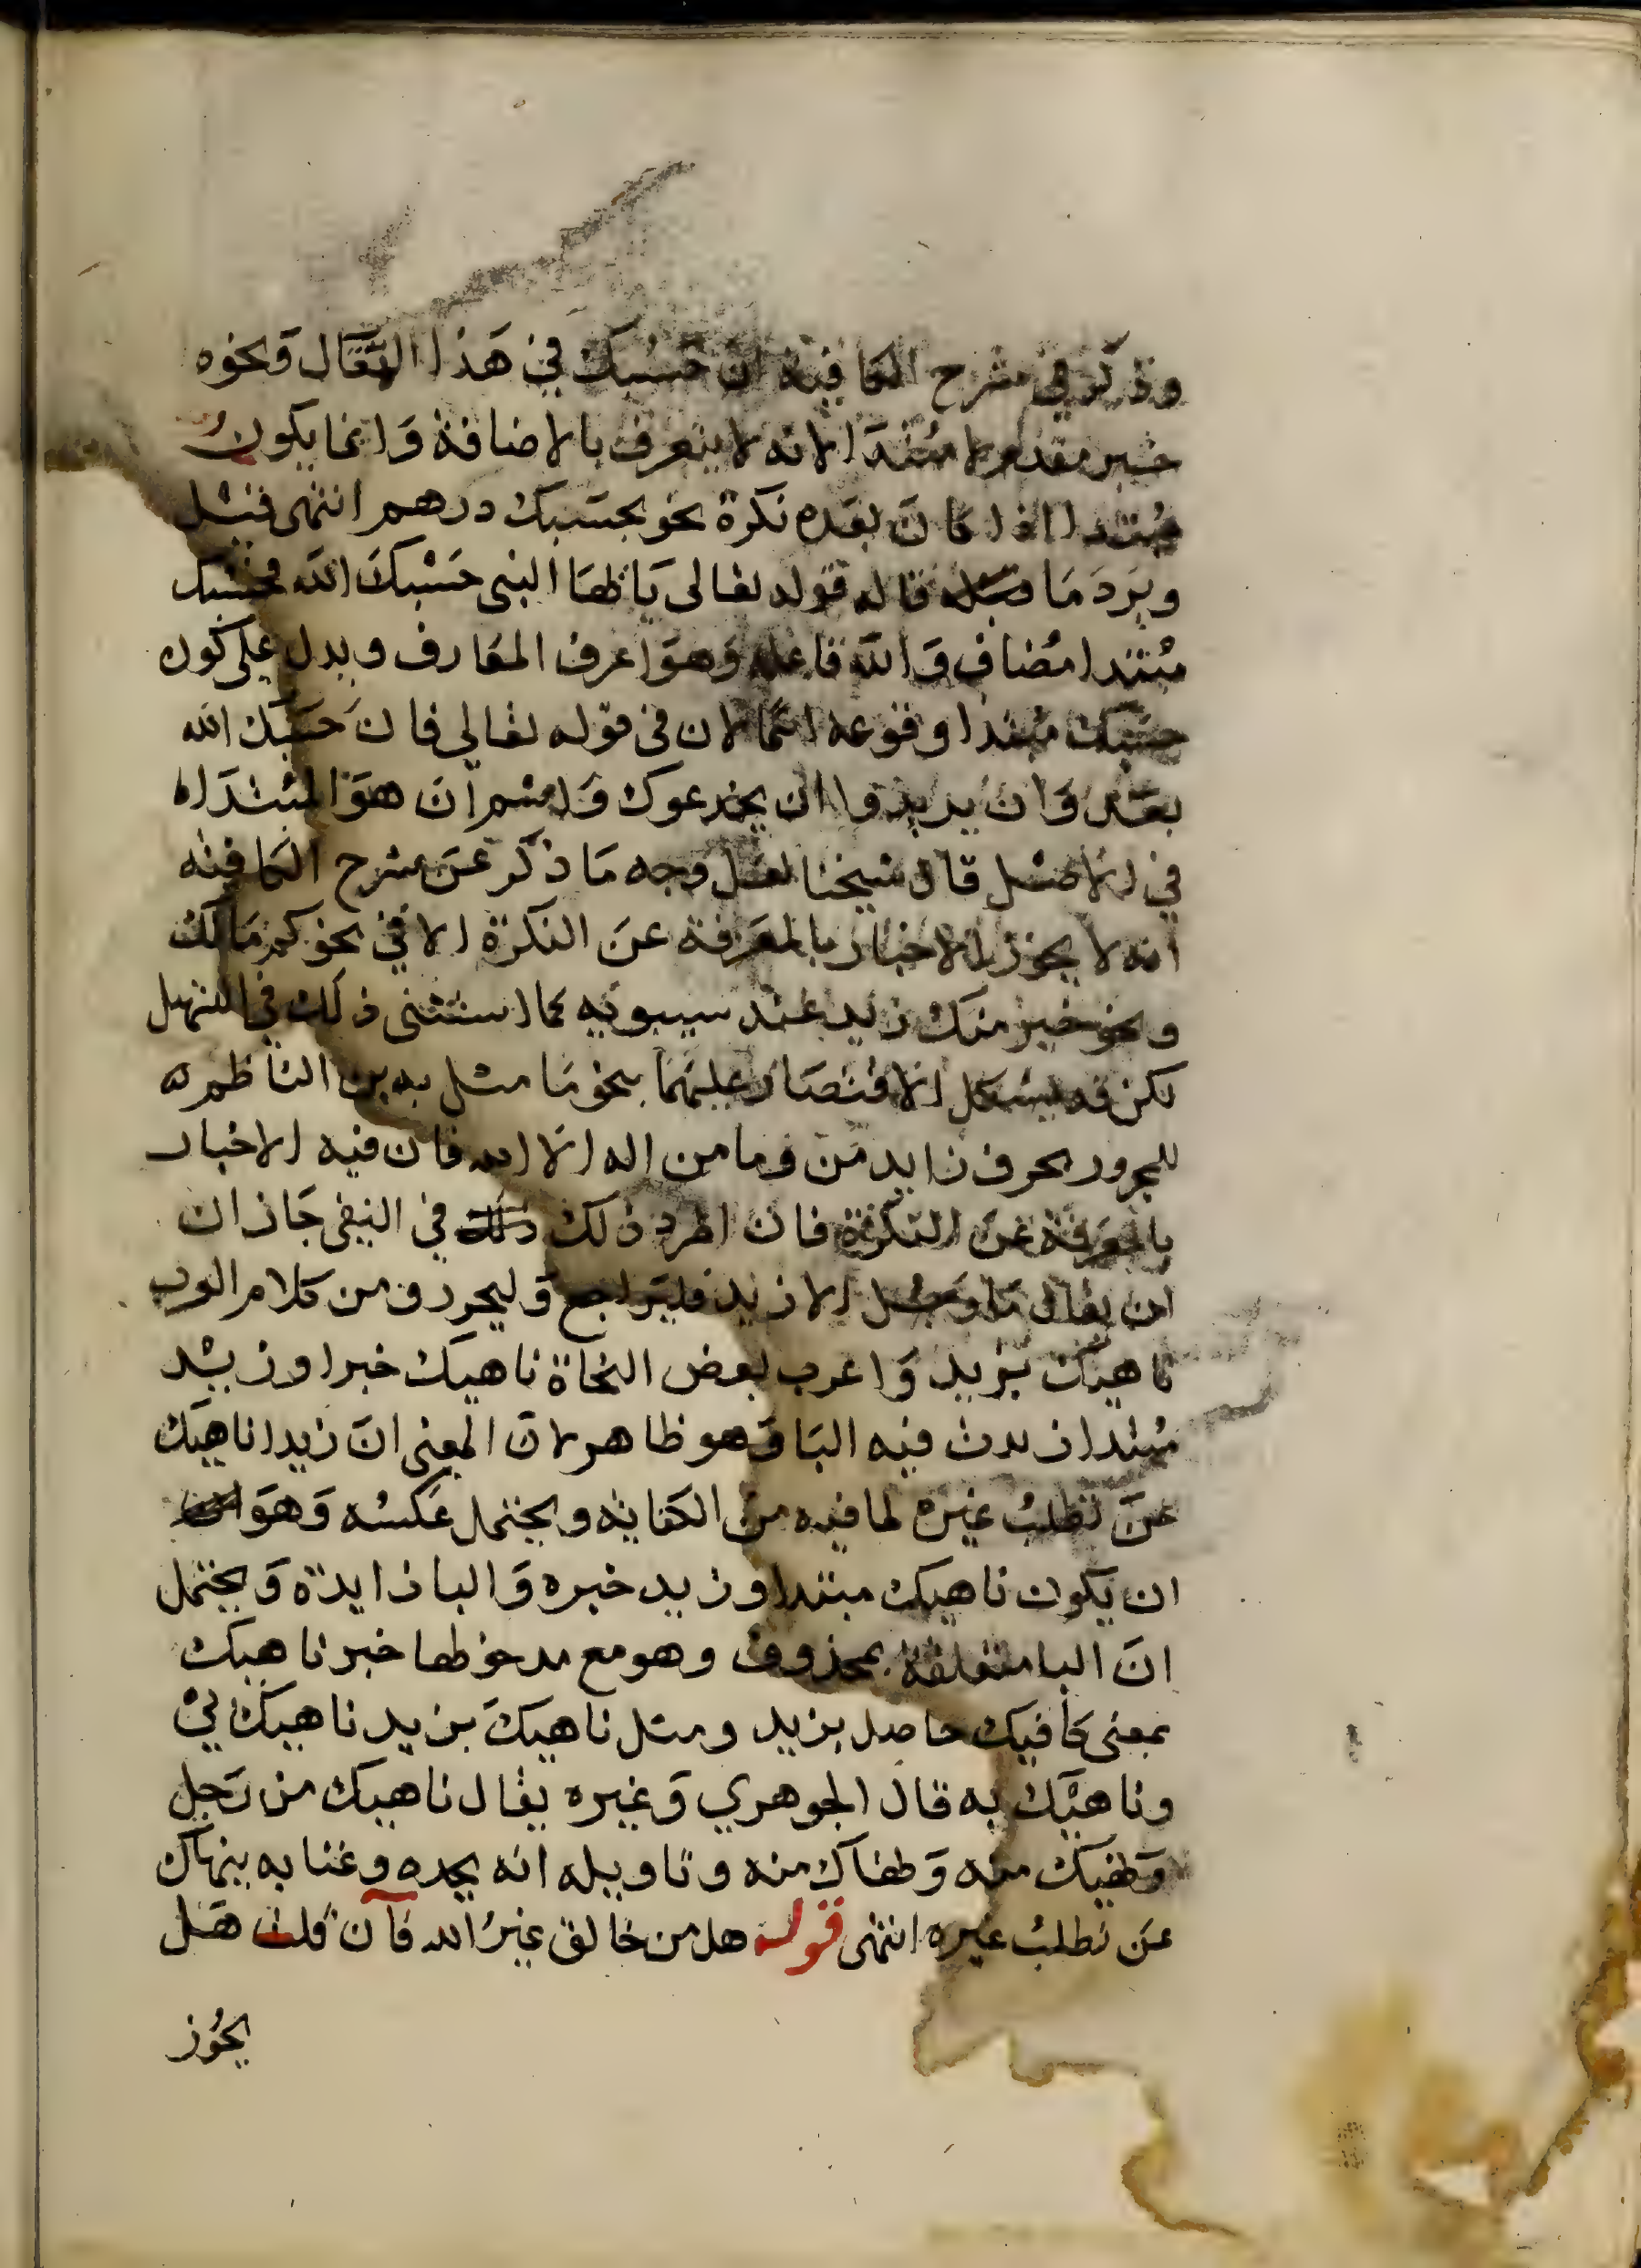 وذكر في شرح الكافية ان حسبك في هذا المثال ونحوه
خبر مقدم لا مبتدا لانه لا يتعرف بالاضافة وانما يكون
مبتدا اذا كان بعده نكرة نحو بحسبك درهم انتهى قيل
ويرد ما قاله قوله تعالى ياايها النبي حسبك الله فحسبك
مبتدا مضاف والله فاعله وهو اعرف المعارف ويدل على كون
حسبك مبتدا وقوعه اسما لان في قوله تعالي فان حسبك الله
بعد وان يريدوا ان يخدعوك واسم ان هو المبتدا
في الاصل قال شيخنا لعل وجه ما ذكر عن شرح الكافيه
انه لا يجوز الاخبار بالمعرفة عن النكرة الا في نحو كم مالك
ونحو خير منك زيد عند سيبويه كما استثنى ذلك في التسهيل
لكن قد يشكل الاقتصار عليهما بنحو ما مثل به بن الناظم له
للجرور بحرف زايد من وما من اله الا الله فان فيه الاخبار
بالمعرفة عن النكرة فان اطرد ذلك في النفي جاز ان
ان يقال ما رجل الا زيد فليراجع وليحرر ومن كلام العرب
ناهيك بزيد واعرب بعض النحاة ناهيك خبرا وزيد
مبتدا زيدت فيه البا وهو ظاهر لان المعنى ان زيدا ناهيك
عن تطلب غيره لما فيه من الكفايه ويحتمل عكسه وهو
ان يكون ناهيك مبتدا وزيد خبره والبا زايدة ويحتمل
ان البا متعلقة بمحذوف وهو مع مدخولها خبر ناهيك
بمعنى كافيك حاصل بزيد ومثل ناهيك بزيد ناهيك بي
وناهيك به قال الجوهري وغيره يقال ناهيك من رجل
ونهيك منه ونهاك منه وتاويله انه بجده وغنايه ينهاك
عن تطلب غيره انتهى قوله هل من خالق غير الله فان قلت هل
يجوز